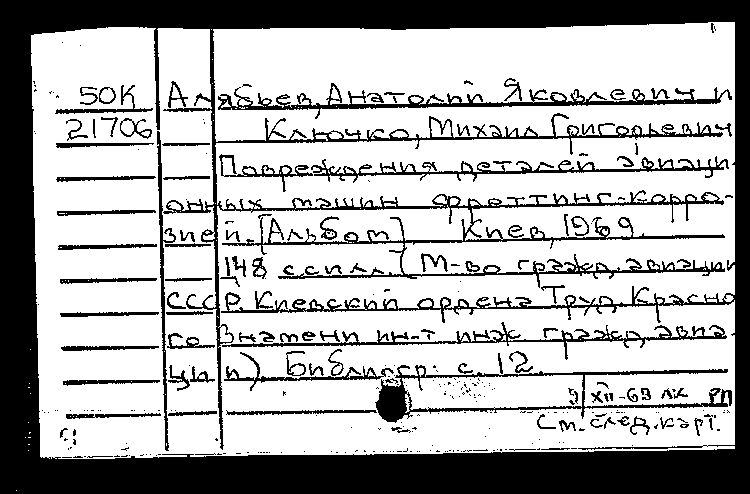 50К Алябьев, Анатолий Яковлевич и
21706 Ключко, Михаил Григорьевич
Повреждения деталей авиаци-
онных машин фреттинг-корро-
зией. [Альбом] Киев, 1969.
148 с. с илл. (М-во гражд. авиации
СССР. Киевский ордена Труд. Красно
го Знамени ин-т инж гражд. авиа-
ции). Библиогр: с. 12.
9/XII-69 лк РП
См. след. карт.